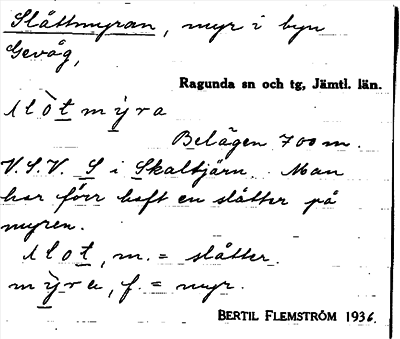 Slåttmyran, myr i byn
Gevåg,
Ragunda sn och tg, Jämtl. län.
slòt mỳra
Belägen 700 m.
V.S.V. S i Skaltjärn. Man
har förr haft en slåtter på
myren.
slot, m. = slåtter.
mỳra, f. = myr.
BERTIL FLEMSTRÖM 1936.